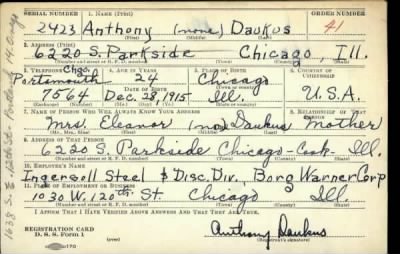 SERIAL NUMBER 1. NAME (Print) ORDER NUMBER
2423 Anthony (none) Daukus 41
(First) (Middle) (Last)
2. ADDRESS (Print)
6220 S. Parkside Chicago Ill.
(Number and street or R. F. D. number) (Town) (County) (State)
3. TELEPHONE Chgo. 4. AGE IN YEARS 5. PLACE OF BIRTH 6. COUNTRY OF CITIZENSHIP
Portsmouth 24 Chicago
DATE OF BIRTH
7564 Dec. 28, 1915 Ill. U.S.A.
(Exchange) (Number) (Mo.) (Day) (Yr.) (State or country)
7. NAME OF PERSON WHO WILL ALWAYS KNOW YOUR ADDRESS 8. RELATIONSHIP OF THAT PERSON
Mrs. Eleanor (no) Daukus Mother
(Mr., Mrs., Miss) (First) (Middle) (Last)
9. ADDRESS OF THAT PERSON
6220 S. Parkside Chicago - Cook - Ill.
(Number and street or R. F. D. number) (Town) (County) (State)
10. EMPLOYER'S NAME
Ingersoll Steel & Disc. Div., Borg Warner Corp
11. PLACE OF EMPLOYMENT OR BUSINESS
1030 W. 120th St. Chicago Ill.
(Number and street or R. F. D. number) (Town) (County) (State)
I AFFIRM THAT I HAVE VERIFIED ABOVE ANSWERS AND THAT THEY ARE TRUE.
REGISTRATION CARD
D. S. S. Form 1
Anthony Daukus
(Registrant's signature)
1638 S. E. 12th St. Portland 14, Oreg